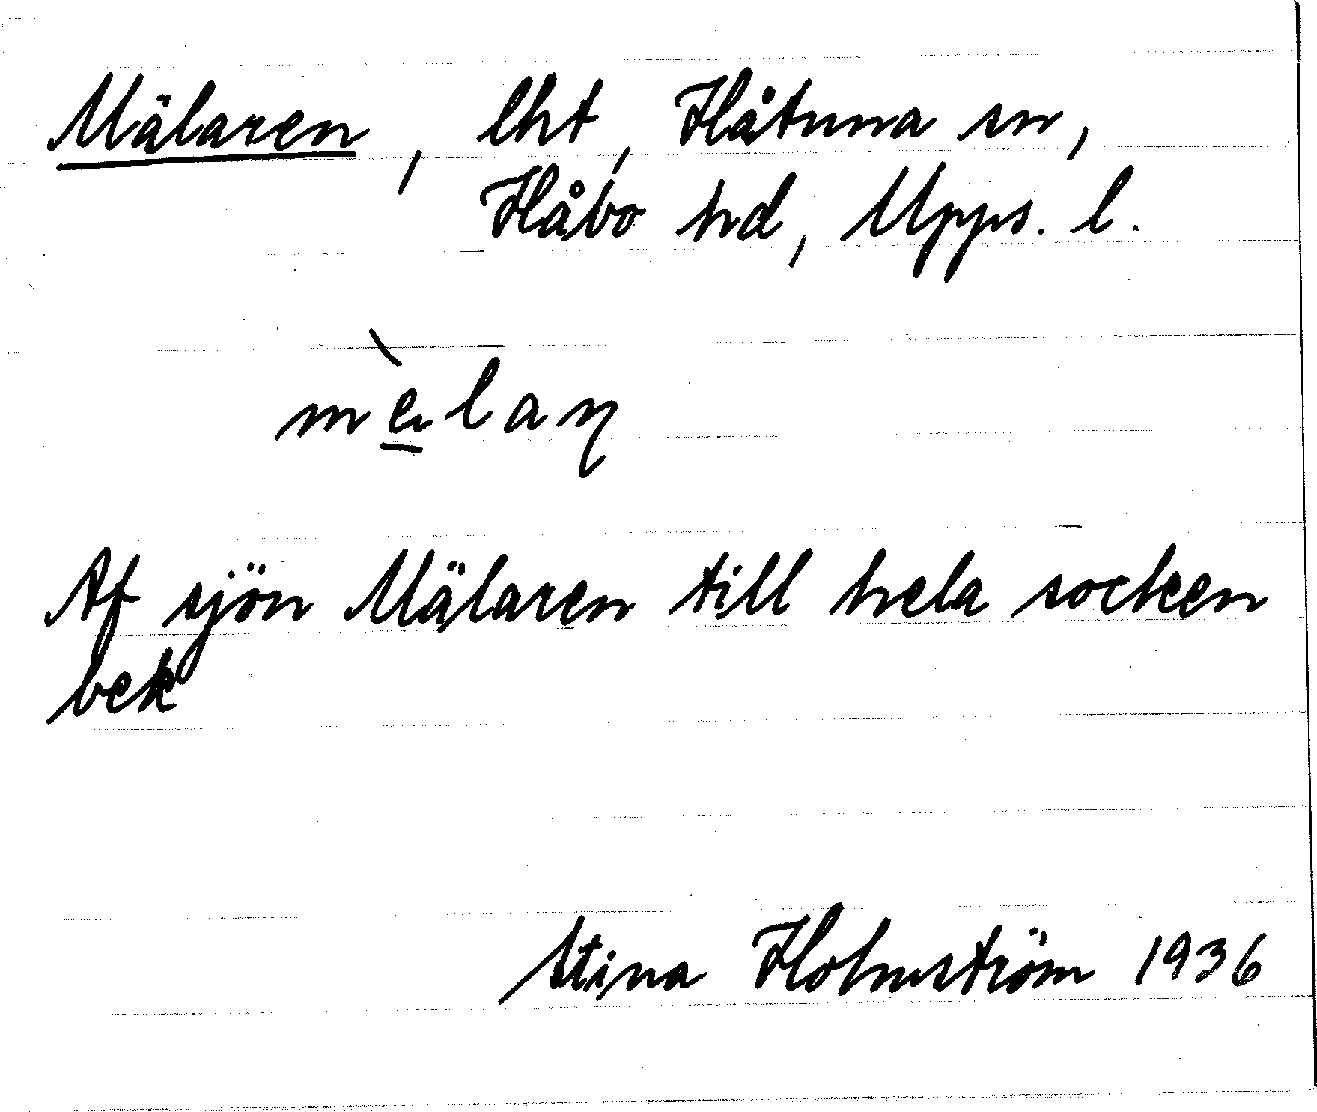 Mälaren, lht, Håtuna sn,
Håbo hd, Upps. l.
mèlaɳ
Af sjön Mälaren till hela socken
bek
Stina Holmström 1936